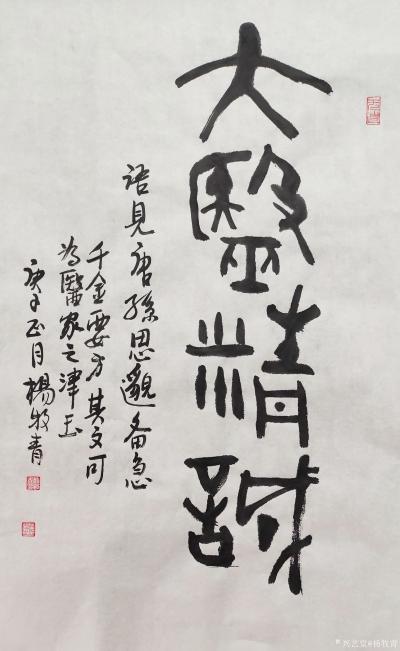 大毉精誠
語見唐孫思邈备急
千金要方其文可
为醫家之津玉
庚子正月楊牧青
兴艺堂@杨牧青